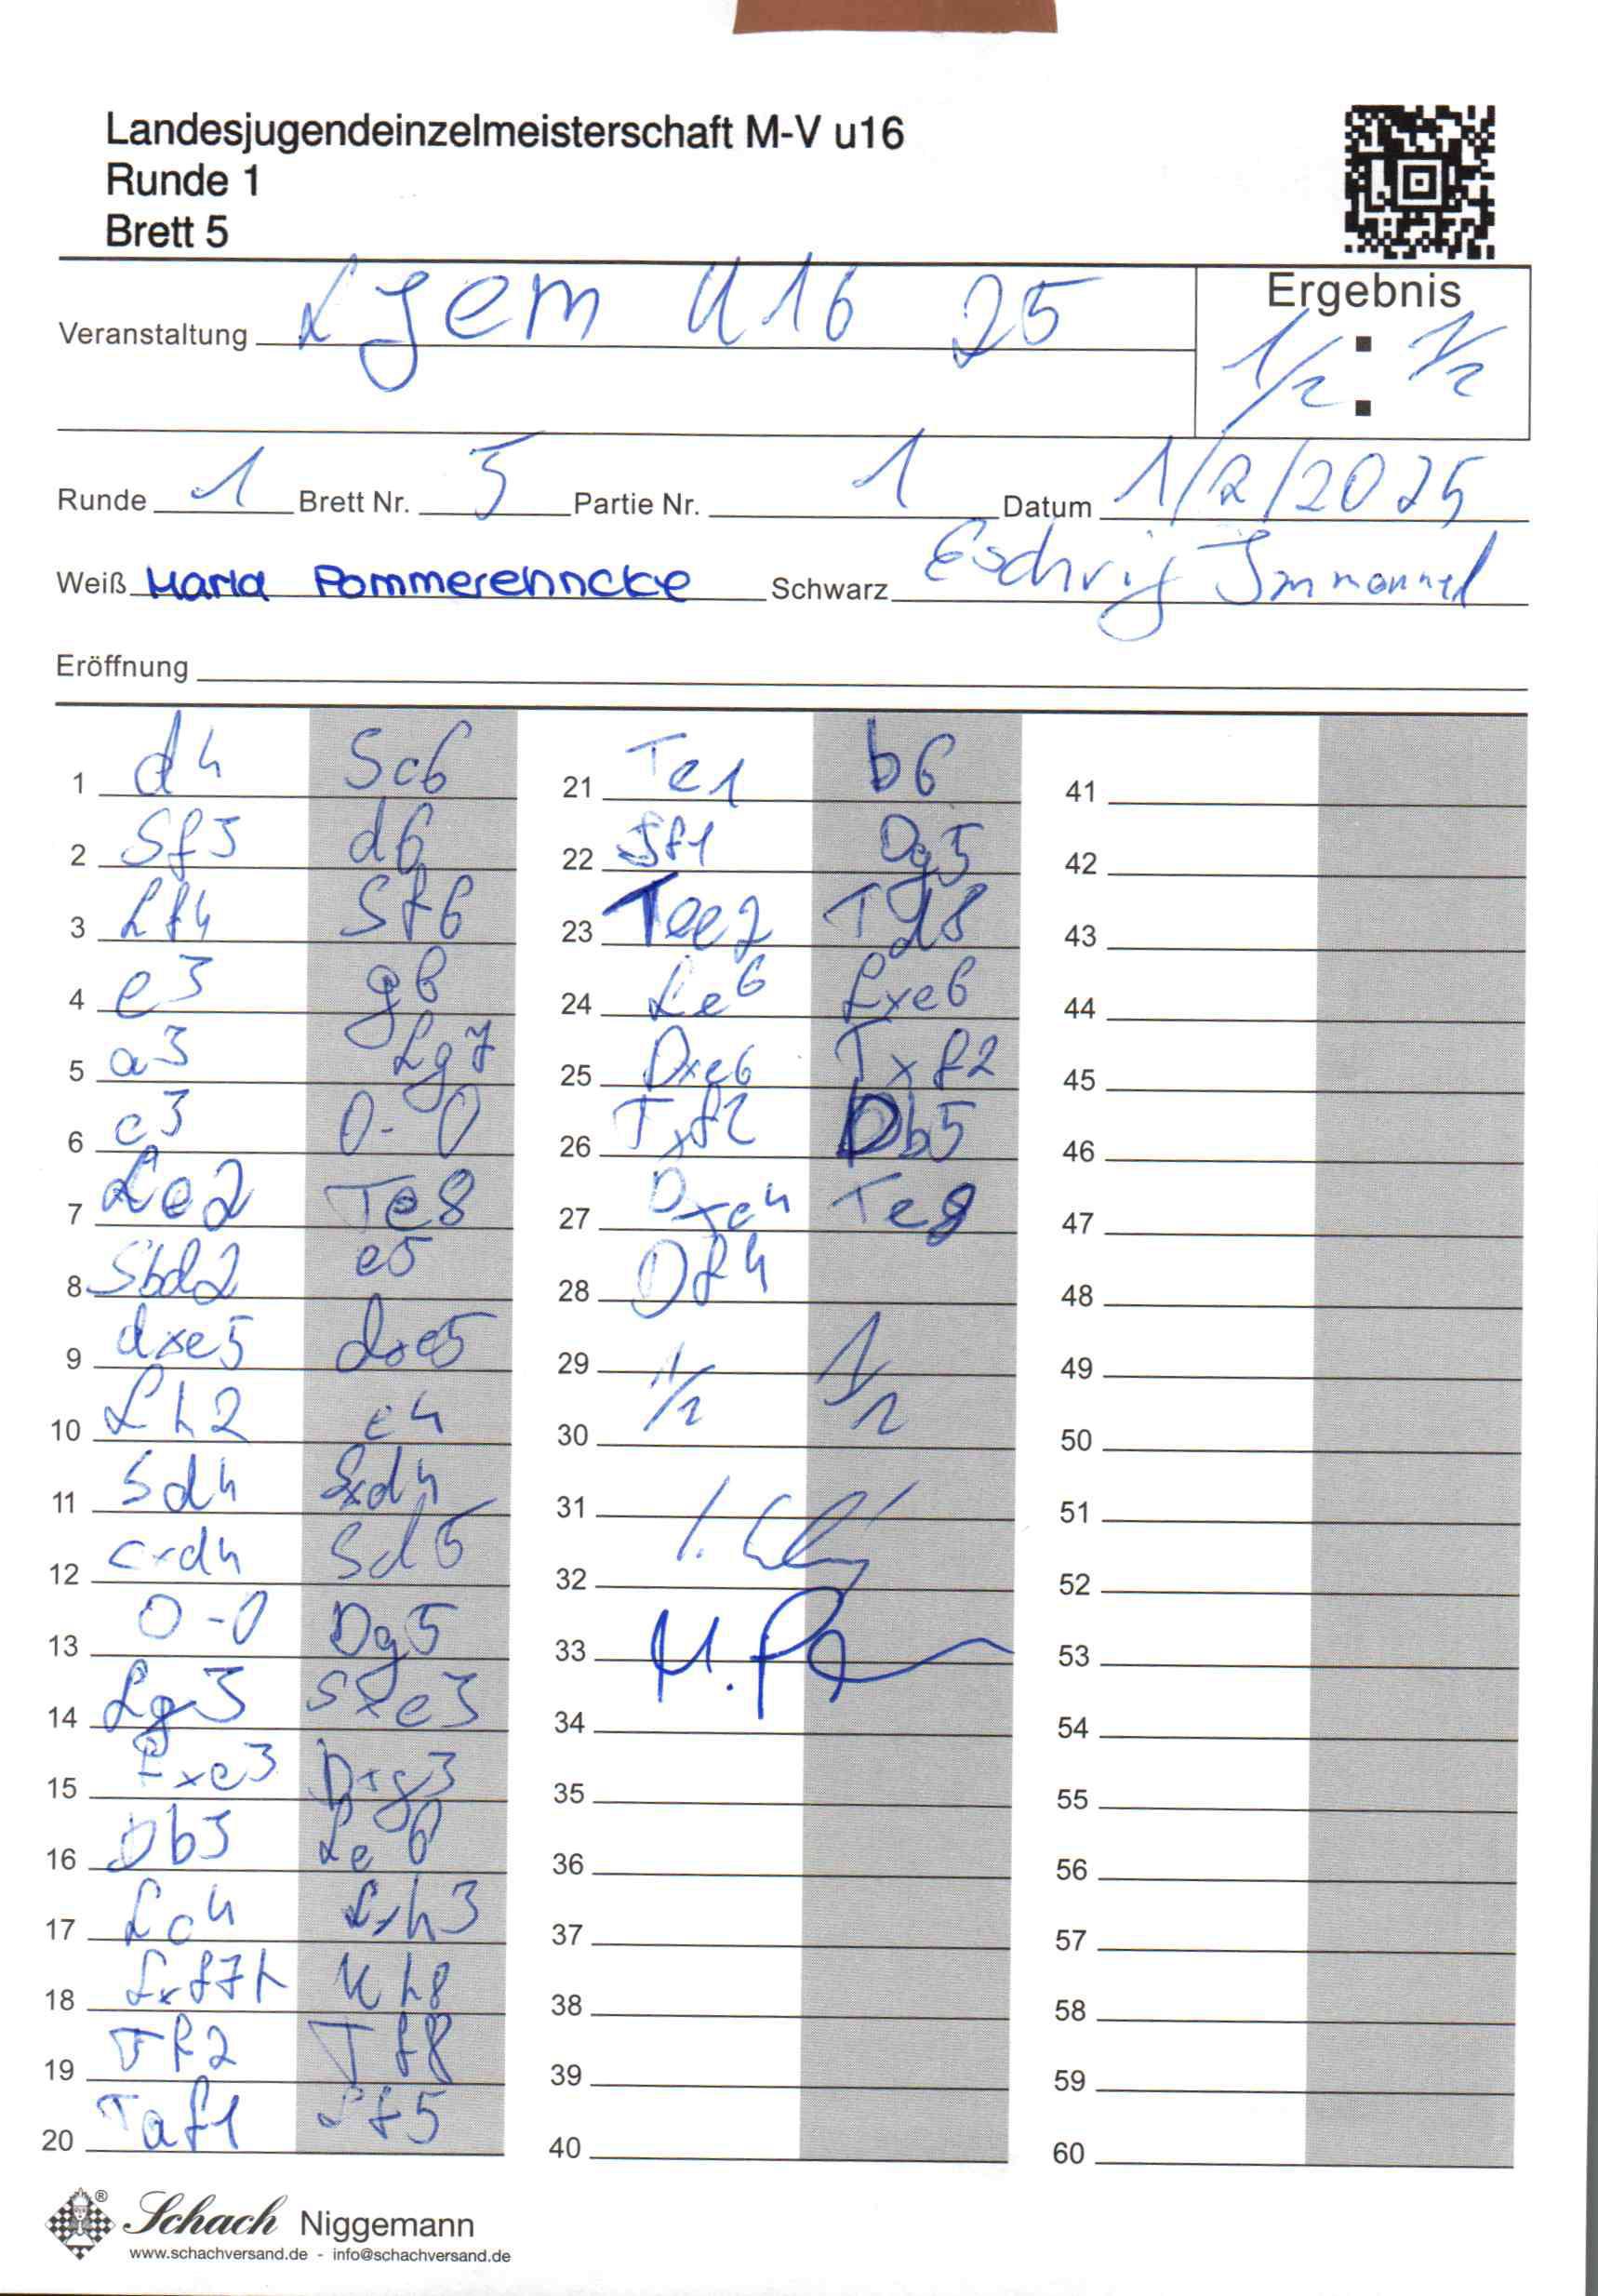 Landesjugendeinzelmeisterschaft M-V u16
Runde 1
Brett 5
Veranstaltung Ljem U16 25
Ergebnis 1/2 : 1/2
Runde 1 Brett Nr. 5 Partie Nr. 1 Datum 1/2/2025
Weiß Maria Pommerehncke Schwarz Eschrig Immanuel
Eröffnung
1 d4 Sc6
2 Sf3 d6
3 Lf4 Sf6
4 e3 g6
5 a3 Lg7
6 c3 0-0
7 Le2 Te8
8 Sbd2 e5
9 dxe5 dxe5
10 Lh2 e4
11 Sd4 Sxd4
12 cxd4 Sd5
13 0-0 Dg5
14 Lg3 Sxe3
15 fxe3 Dxg3
16 Db3 Le6
17 Lc4 Lxh3
18 Lxf7+ Kh8
19 Tf2 Tf8
20 Taf1 Lf5
21 Te1 b6
22 Sf1 Dg5
23 Tee2 Td8
24 Le6 Lxe6
25 Dxe6 Txf2
26 Txf2 Db5
27 Dxe4 Te8
28 Df4
29 1/2 1/2
30
31
32
33 M. P
34
35
36
37
38
39
40
41
42
43
44
45
46
47
48
49
50
51
52
53
54
55
56
57
58
59
60
Schach Niggemann
www.schachversand.de - info@schachversand.de